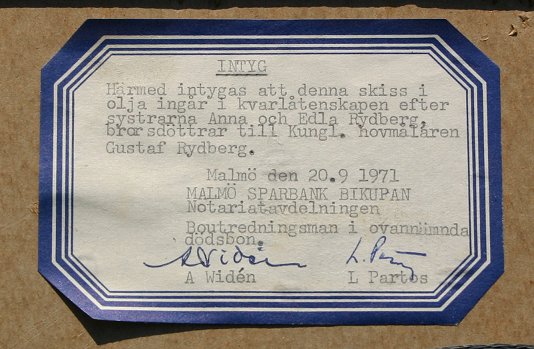 INTYG
Härmed intygas att denna skiss i
olja ingår i kvarlåtenskapen efter
systrarna Anna och Edla Rydberg,
brorsdöttrar till Kungl. hovmålaren
Gustaf Rydberg.
Malmö den 20.9 1971
MALMÖ SPARBANK BIKUPAN
Notariatavdelningen
Boutredningsman i ovannämnda
dödsbon.
A Widén L Partos
A Widén L Partos